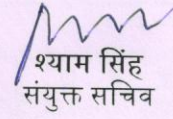 श्याम सिंह
संयुक्त सचिव